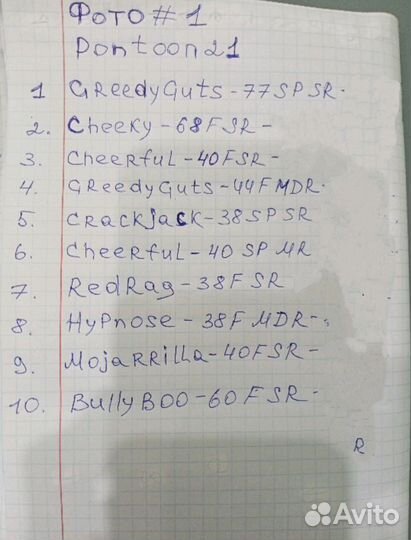 Фото # 1
Pontoon21
1 GReedyGuts-77SPSR-
2. Cheeky-68FSR-
3. CheeRfuL-40FSR-
4. GReedyGuts-44FMDR-
5. CRackJack-38SPSR
6. CheeRfuL-40 SP MR
7. RedRag-38F SR
8. HyPnose-38F MDR-
9. MojaRRiLLa-40FSR-
10. BullyBOO-60 FSR-
R
Avito